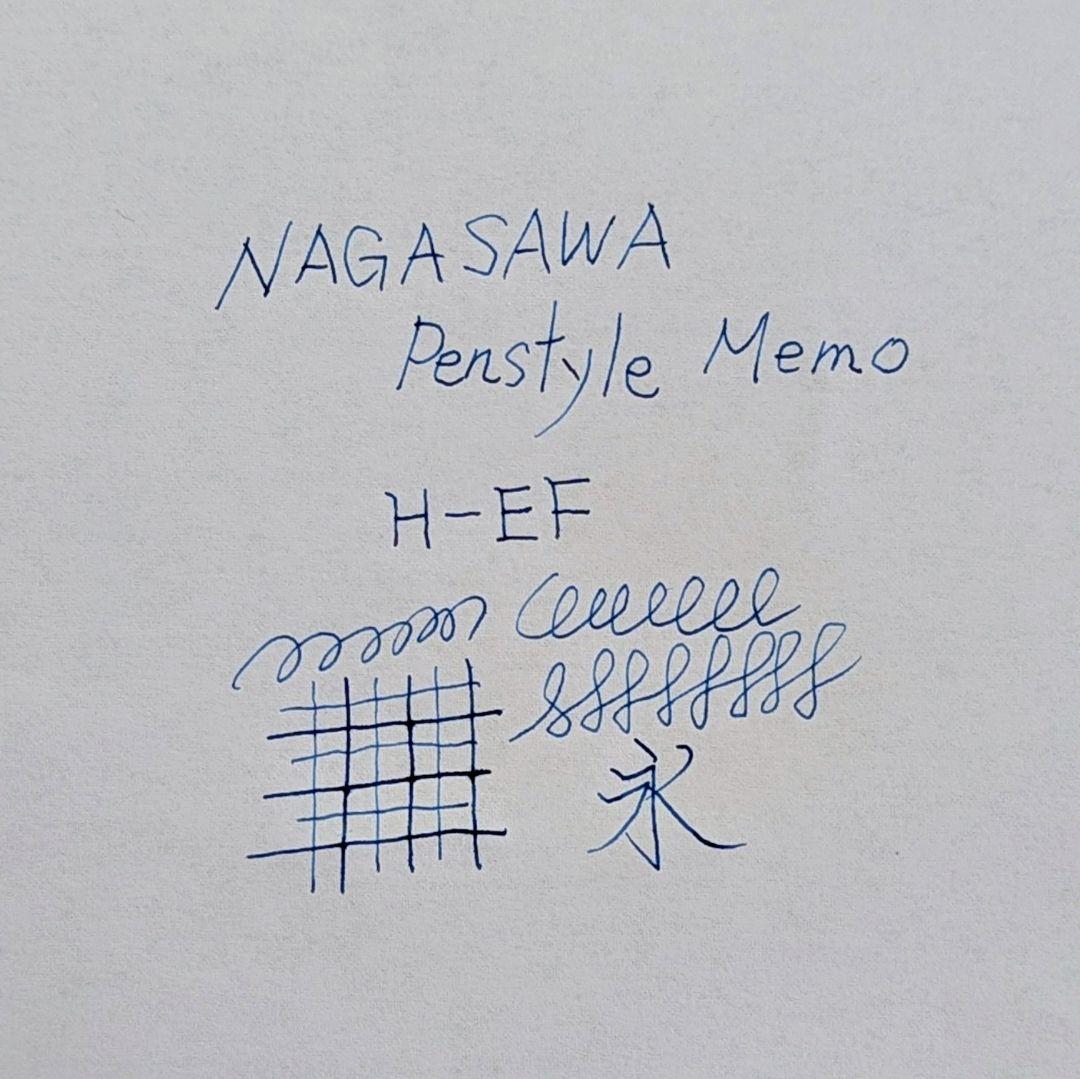 NAGASAWA
Penstyle Memo
H-EF
永